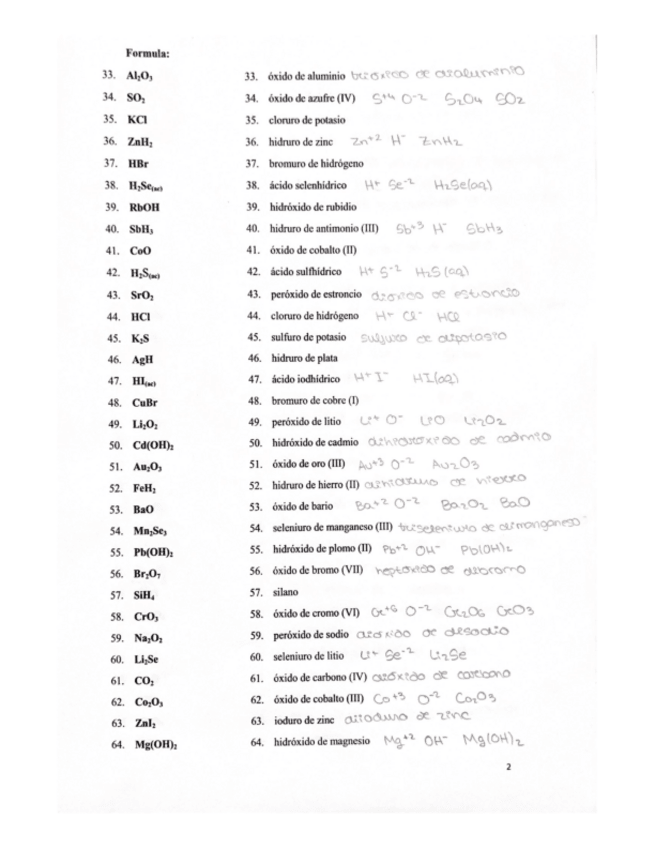 Formula:
33. Al₂O₃ 33. óxido de aluminio trióxido de dialuminio
34. SO₂ 34. óxido de azufre (IV) S⁺⁴ O⁻² S₂O₄ SO₂
35. KCl 35. cloruro de potasio
36. ZnH₂ 36. hidruro de zinc Zn⁺² H⁻ ZnH₂
37. HBr 37. bromuro de hidrógeno
38. H₂Se(ac) 38. ácido selenhídrico H⁺ Se⁻² H₂Se(aq)
39. RbOH 39. hidróxido de rubidio
40. SbH₃ 40. hidruro de antimonio (III) Sb⁺³ H⁻ SbH₃
41. CoO 41. óxido de cobalto (II)
42. H₂S(ac) 42. ácido sulfhídrico H⁺ S⁻² H₂S (aq)
43. SrO₂ 43. peróxido de estroncio dióxido de estroncio
44. HCl 44. cloruro de hidrógeno H⁺ Cl⁻ HCl
45. K₂S 45. sulfuro de potasio sulfuro de dipotasio
46. AgH 46. hidruro de plata
47. HI(ac) 47. ácido iodhídrico H⁺ I⁻ HI(aq)
48. CuBr 48. bromuro de cobre (I)
49. Li₂O₂ 49. peróxido de litio Li⁺ O⁻ LiO Li₂O₂
50. Cd(OH)₂ 50. hidróxido de cadmio dihidróxido de cadmio
51. Au₂O₃ 51. óxido de oro (III) Au⁺³ O⁻² Au₂O₃
52. FeH₂ 52. hidruro de hierro (II) dihidruro de hierro
53. BaO 53. óxido de bario Ba⁺² O⁻² Ba₂O₂ BaO
54. Mn₂Se₃ 54. seleniuro de manganeso (III) triseleniuro de dimanganeso
55. Pb(OH)₂ 55. hidróxido de plomo (II) Pb⁺² OH⁻ Pb(OH)₂
56. Br₂O₇ 56. óxido de bromo (VII) heptóxido de dibromo
57. SiH₄ 57. silano
58. CrO₃ 58. óxido de cromo (VI) Cr⁺⁶ O⁻² Cr₂O₆ CrO₃
59. Na₂O₂ 59. peróxido de sodio dióxido de disodio
60. Li₂Se 60. seleniuro de litio Li⁺ Se⁻² Li₂Se
61. CO₂ 61. óxido de carbono (IV) dióxido de carbono
62. Co₂O₃ 62. óxido de cobalto (III) Co⁺³ O⁻² Co₂O₃
63. ZnI₂ 63. ioduro de zinc diioduro de zinc
64. Mg(OH)₂ 64. hidróxido de magnesio Mg⁺² OH⁻ Mg(OH)₂
2